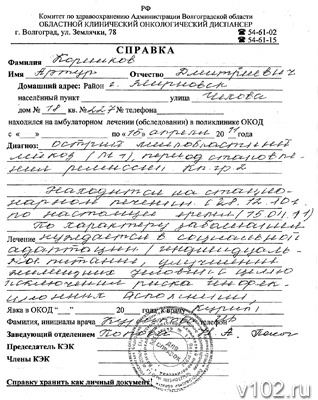 РФ
Комитет по здравоохранению Администрации Волгоградской области
ОБЛАСТНОЙ КЛИНИЧЕСКИЙ ОНКОЛОГИЧЕСКИЙ ДИСПАНСЕР
г. Волгоград, ул. Землячки, 78 ☎ 54-61-02
☎ 54-61-15
СПРАВКА
Фамилия
Имя Артур Отчество Дмитриевич
Домашний адрес: Район г.
населённый пункт улица Чехова
дом № 18 кв. № телефона
находился на амбулаторном лечении (обследовании) в поликлинике ОКОД
с « » по «15» апреля 2011 года
Диагноз: острый миелобластный
лейкоз период
ремиссии Кл. гр. 2
Находится на стацио-
нарном лечении с 28.12.10г.
по настоящее время (15.04.11)
По характеру заболевания
Лечение нуждается в социальной
адаптации, индивидуаль-
питании, улучшении
жилищных условий с целью
исключения риска инфек-
ционных осложнений
Явка в ОКОД « » 20 года к врачу
Фамилия, инициалы врача
Заведующий отделением
Председатель КЭК
Члены КЭК
Справку хранить как личный документ!
v102.ru